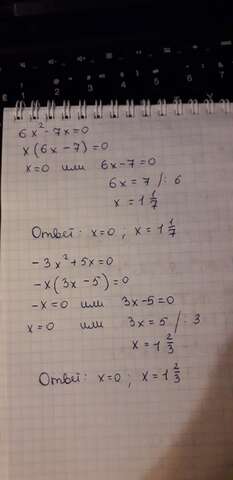 6x² - 7x = 0
x(6x - 7) = 0
x = 0 или 6x - 7 = 0
6x = 7 /: 6
x = 1 1/7
Ответ: x = 0; x = 1 1/7
-3x² + 5x = 0
-x(3x - 5) = 0
-x = 0 или 3x - 5 = 0
x = 0 или 3x = 5 /: 3
x = 1 2/3
Ответ: x = 0; x = 1 2/3